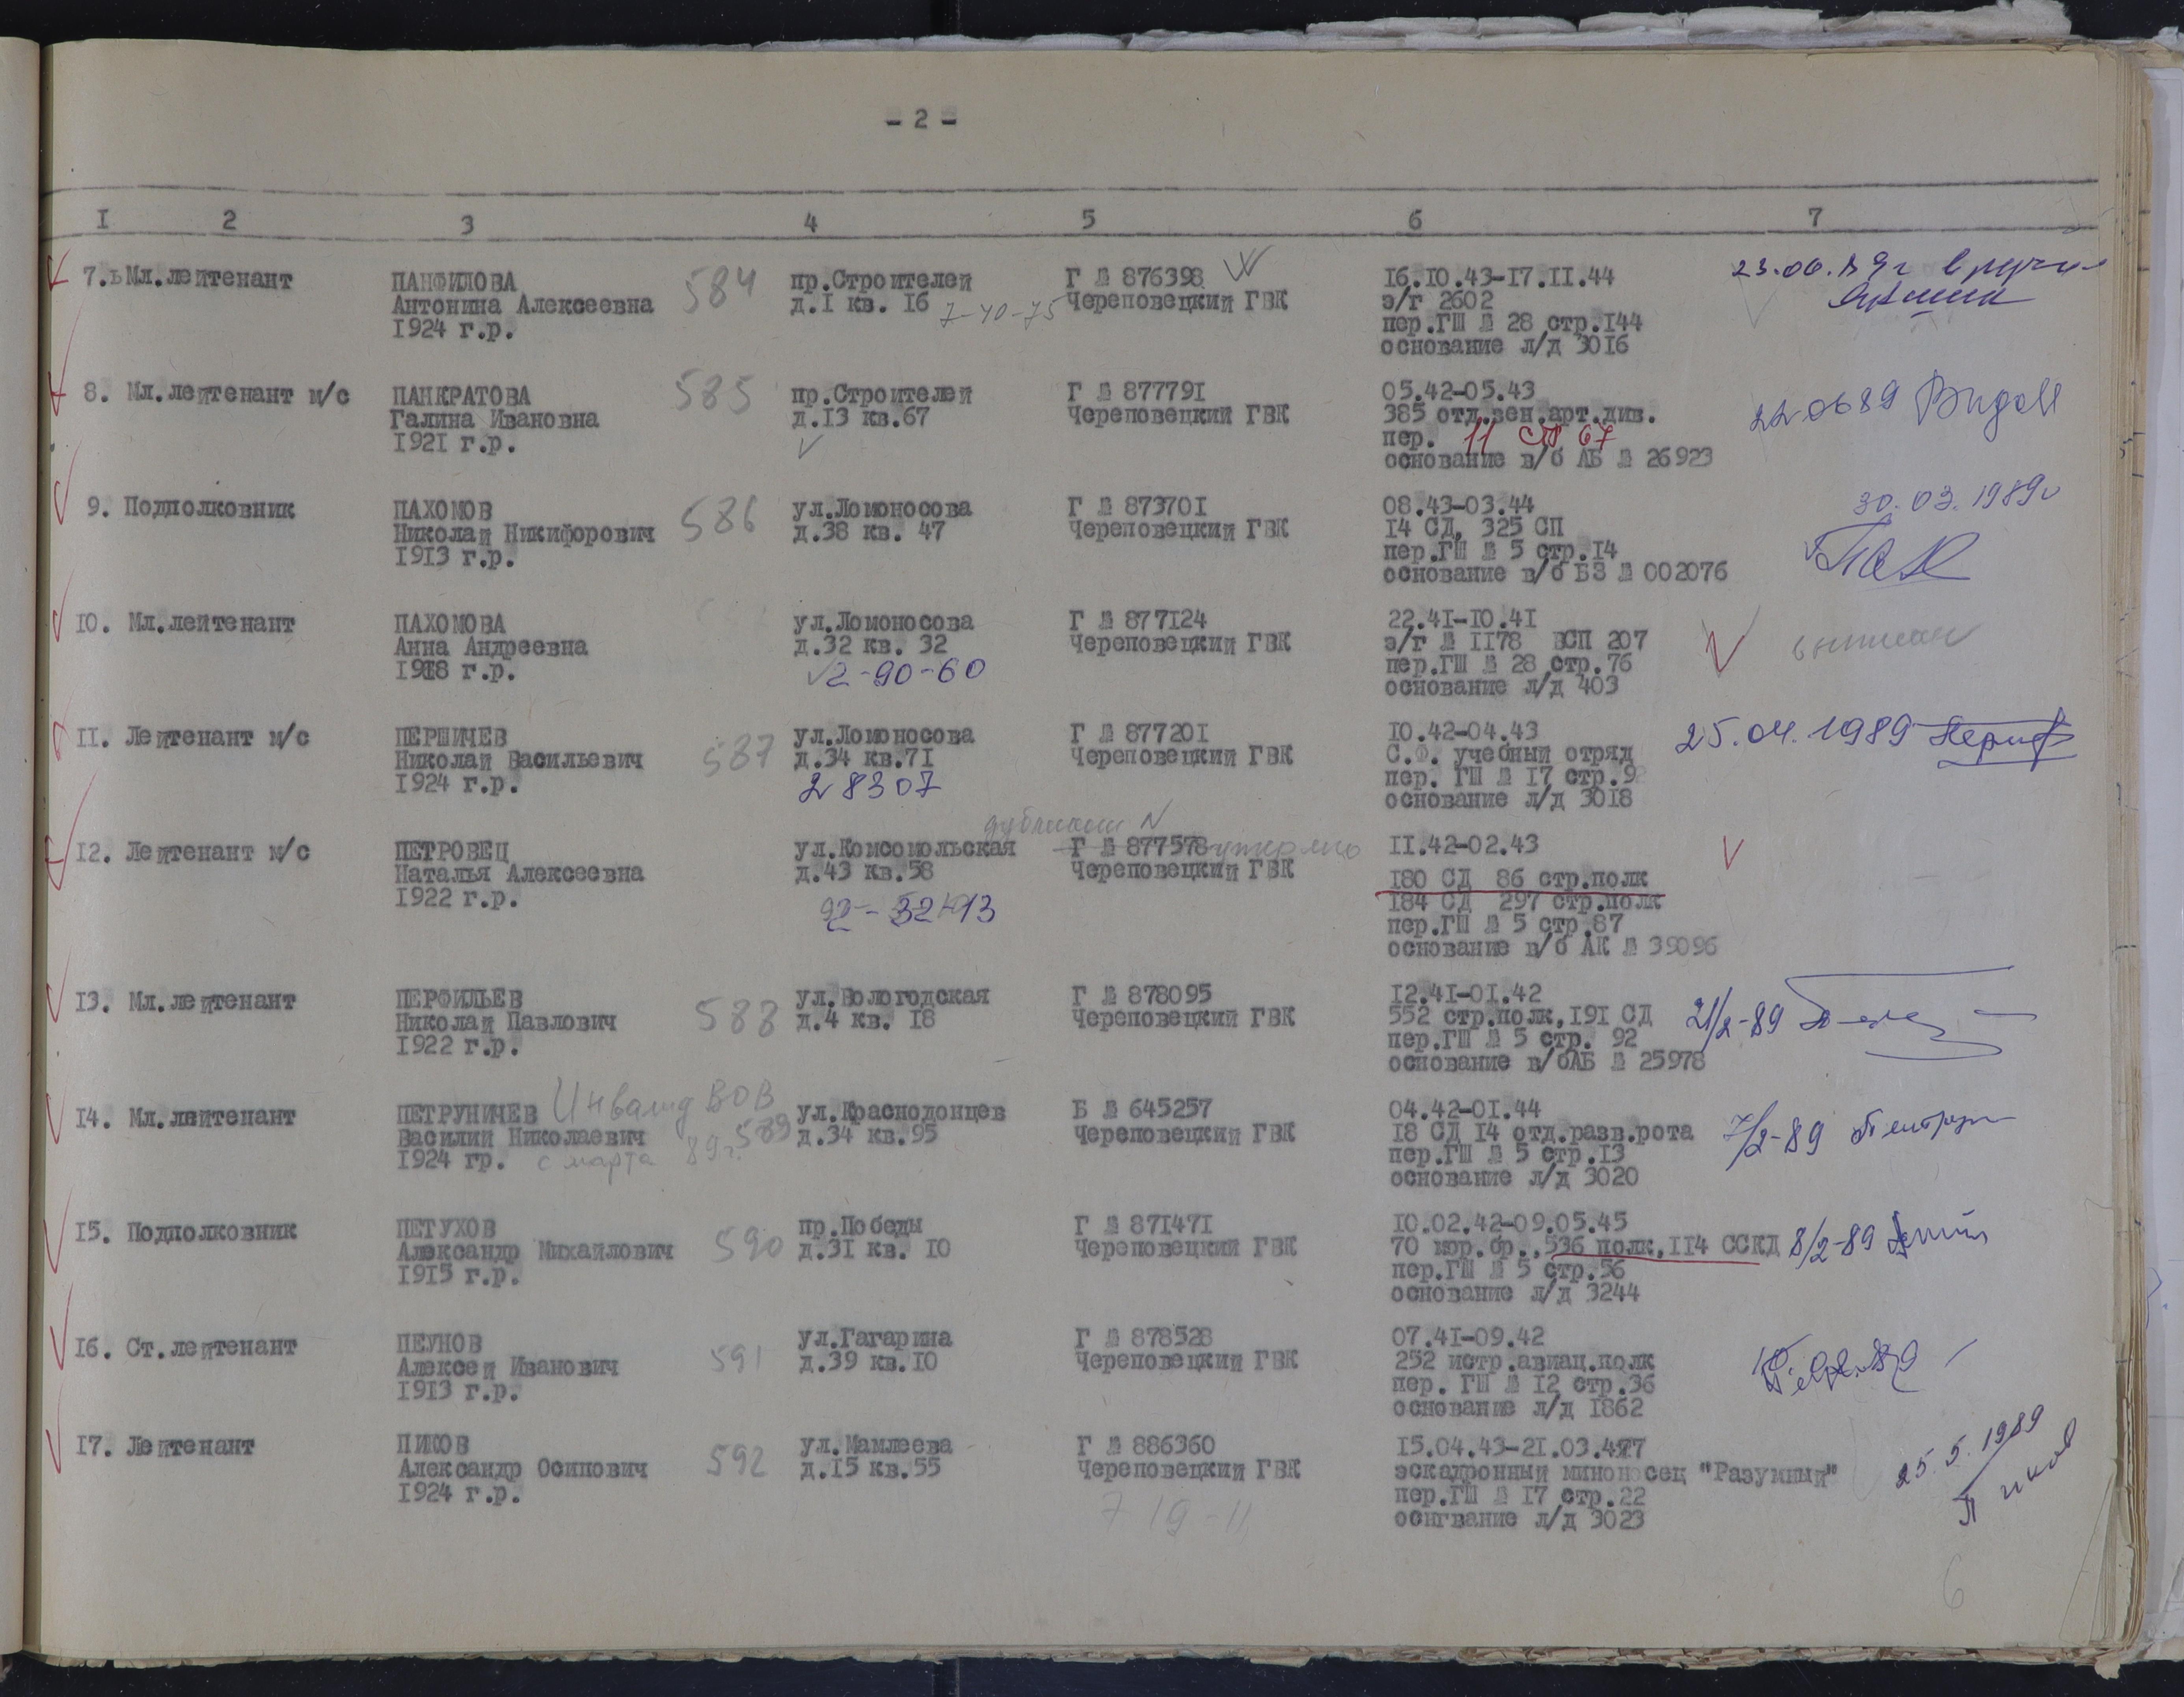 - 2 -
I 2 3 4 5 6 7
7. Мл.лейтенант
ПАНФИЛОВА
Антонина Алексеевна
1924 г.р.
584
пр.Строителей
д.I кв. I6
7-40-75
Г № 876398
Череповецкий ГВК
I6.I0.43-I7.II.44
э/г 2602
пер.ГШ № 28 стр.I44
основание л/д 30I6
23.06.89г
8. Мл.лейтенант м/с
ПАНКРАТОВА
Галина Ивановна
I92I г.р.
585
пр.Строителей
д.I3 кв.67
Г № 87779I
Череповецкий ГВК
05.42-05.43
385 отд.зен.арт.див.
пер. 11 стр 67
основание в/б АБ № 26923
220689
9. Подполковник
ПАХОМОВ
Николай Никифорович
I9I3 г.р.
586
ул.Ломоносова
д.38 кв. 47
Г № 87370I
Череповецкий ГВК
08.43-03.44
I4 СД, 325 СП
пер.ГШ № 5 стр.I4
основание в/б БЗ № 002076
30.03.1989
10. Мл.лейтенант
ПАХОМОВА
Анна Андреевна
I9I8 г.р.
ул.Ломоносова
д.32 кв. 32
2-90-60
Г № 877I24
Череповецкий ГВК
22.4I-I0.4I
э/г № II78 ВСП 207
пер.ГШ № 28 стр.76
основание л/д 403
II. Лейтенант м/с
ПЕРШИЧЕВ
Николай Васильевич
I924 г.р.
587
ул.Ломоносова
д.34 кв.7I
2 8307
Г № 87720I
Череповецкий ГВК
I0.42-04.43
С.Ф. учебный отряд
пер. ГШ № I7 стр.92
основание л/д 30I8
25.04.1989
I2. Лейтенант м/с
ПЕТРОВЕЦ
Наталья Алексеевна
I922 г.р.
ул.Комсомольская
д.43 кв.58
дубликат №
Г № 877578 утеряно
Череповецкий ГВК
II.42-02.43
I80 СД 86 стр.полк
I84 СД 297 стр.полк
пер.ГШ № 5 стр.87
основание в/б АК № 39096
I3. Мл.лейтенант
ПЕРФИЛЬЕВ
Николай Павлович
I922 г.р.
588
ул.Вологодская
д.4 кв. I8
Г № 878095
Череповецкий ГВК
I2.4I-0I.42
552 стр.полк,I9I СД
пер.ГШ № 5 стр. 92
основание в/бАБ № 25978
21/2-89
I4. Мл.лвитенант
ПЕТРУНИЧЕВ Инвалид ВОВ
Василий Николаевич 589
I924 гр. с марта 89г.
ул.Краснодонцев
д.34 кв.95
Б № 645257
Череповецкий ГВК
04.42-0I.44
I8 СД I4 отд.разв.рота
пер.ГШ № 5 стр.I3
основание л/д 3020
7/2-89
I5. Подполковник
ПЕТУХОВ
Александр Михайлович
I9I5 г.р.
590
пр.Победы
д.3I кв. I0
Г № 87I47I
Череповецкий ГВК
I0.02.42-09.05.45
70 мор.бр.,536 полк,II4 ССКД
пер.ГШ № 5 стр.56
основание л/д 3244
8/2-89
I6. Ст.лейтенант
ПЕУНОВ
Алексей Иванович
I9I3 г.р.
591
ул.Гагарина
д.39 кв.I0
Г № 878528
Череповецкий ГВК
07.4I-09.42
252 истр.авиац.полк
пер. ГШ № I2 стр.36
основание л/д I862
I7. Лейтенант
ПИКОВ
Александр Осипович
I924 г.р.
592
ул.Мамлеева
д.I5 кв.55
Г № 886360
Череповецкий ГВК
7 19-11
I5.04.43-2I.03.47
эскадронный миноносец "Разумный"
пер.ГШ № I7 стр.22
осигвание л/д 3023
25.5.1989
Пиков
6